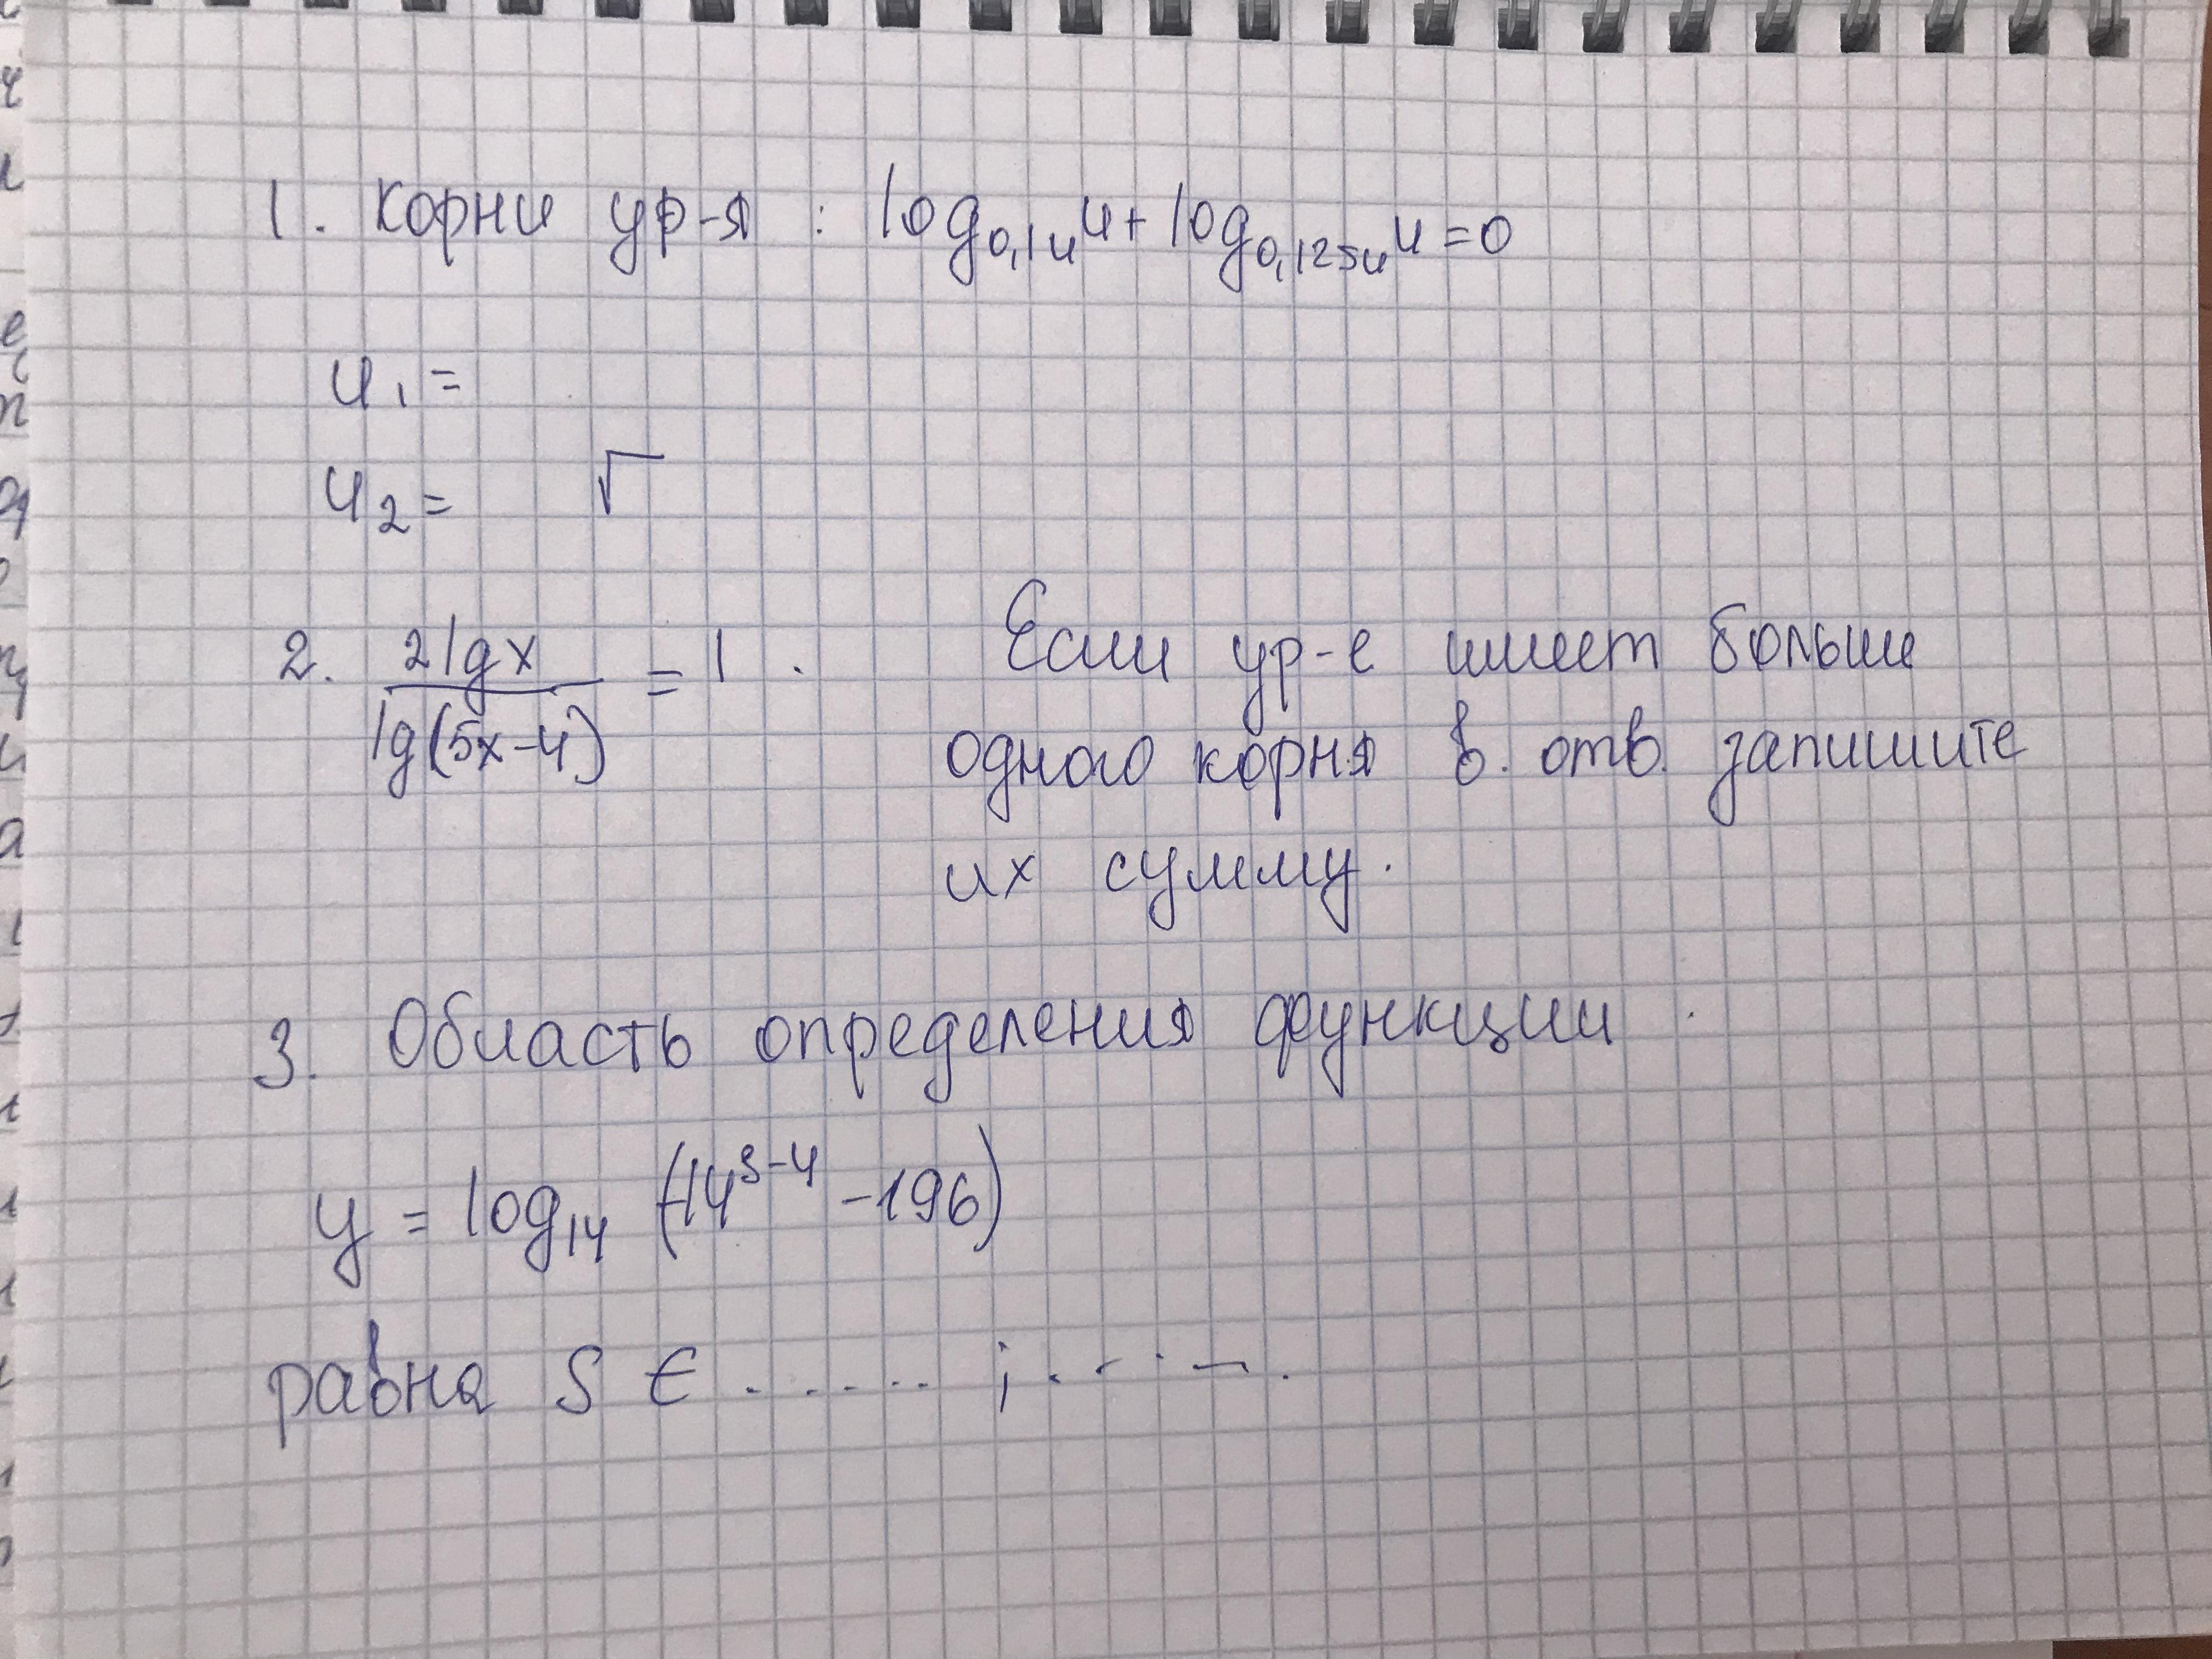 1. Корни ур-я : log₀,₁ᵤ u + log₀,₁₂₅ᵤ u = 0
u₁ =
u₂ = √
2. 2lgx / lg(5x-4) = 1 . Если ур-е имеет больше
одного корня в. отв. запишите
их сумму.
3. Область определения функции .
y = log₁₄ (14^(s-4) - 196)
равна S ∈ ...... ; ......